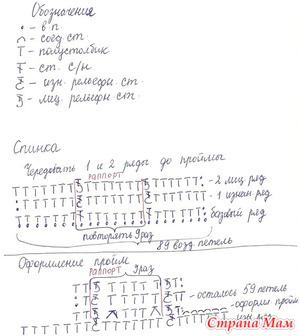 Обозначения
• - в п.
⌒ - соед. ст.
Т - полустолбик
- ст. с/н
- изн. рельефн. ст.
- лиц. рельефн. ст.
Спинка
Чередовать 1 и 2 ряды до проймы
раппорт
- 2 лиц ряд
- 1 изнан ряд
базовый ряд
повторять 9 раз
89 возд петель
Оформление пройм
раппорт 9 раз
- осталось 59 петель
- оформл пройм
изн ряд
Страна Мам